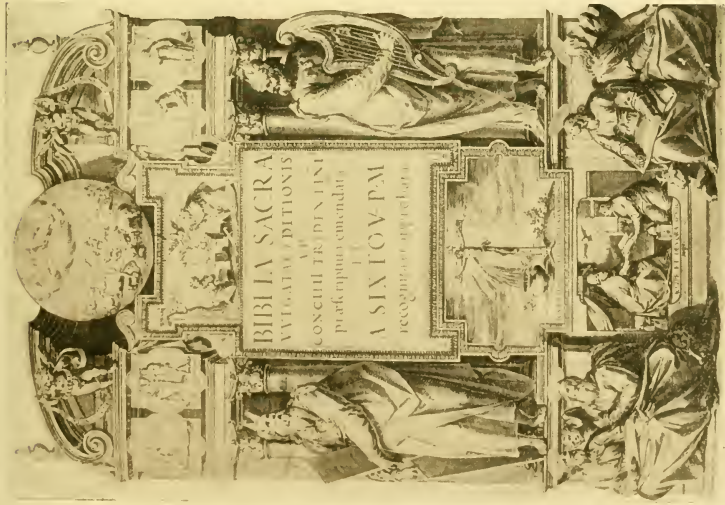 BIBLIA SACRA
VVLGATAE EDITIONIS
AD
CONCILII TRIDENTINI
præscriptum emendata
ET
A SIXTO V. P. M.
recognita et approbata.